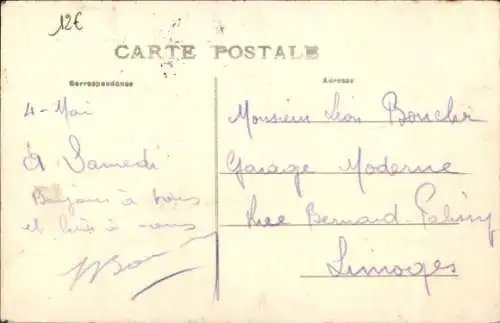 12€
CARTE POSTALE
Correspondance
Adresse
4 - Mai
A Samedi
Bonjour à tous
et à vous
Monsieur Léon Boucher
Garage Moderne
Rue Bernard Palissy
Limoges